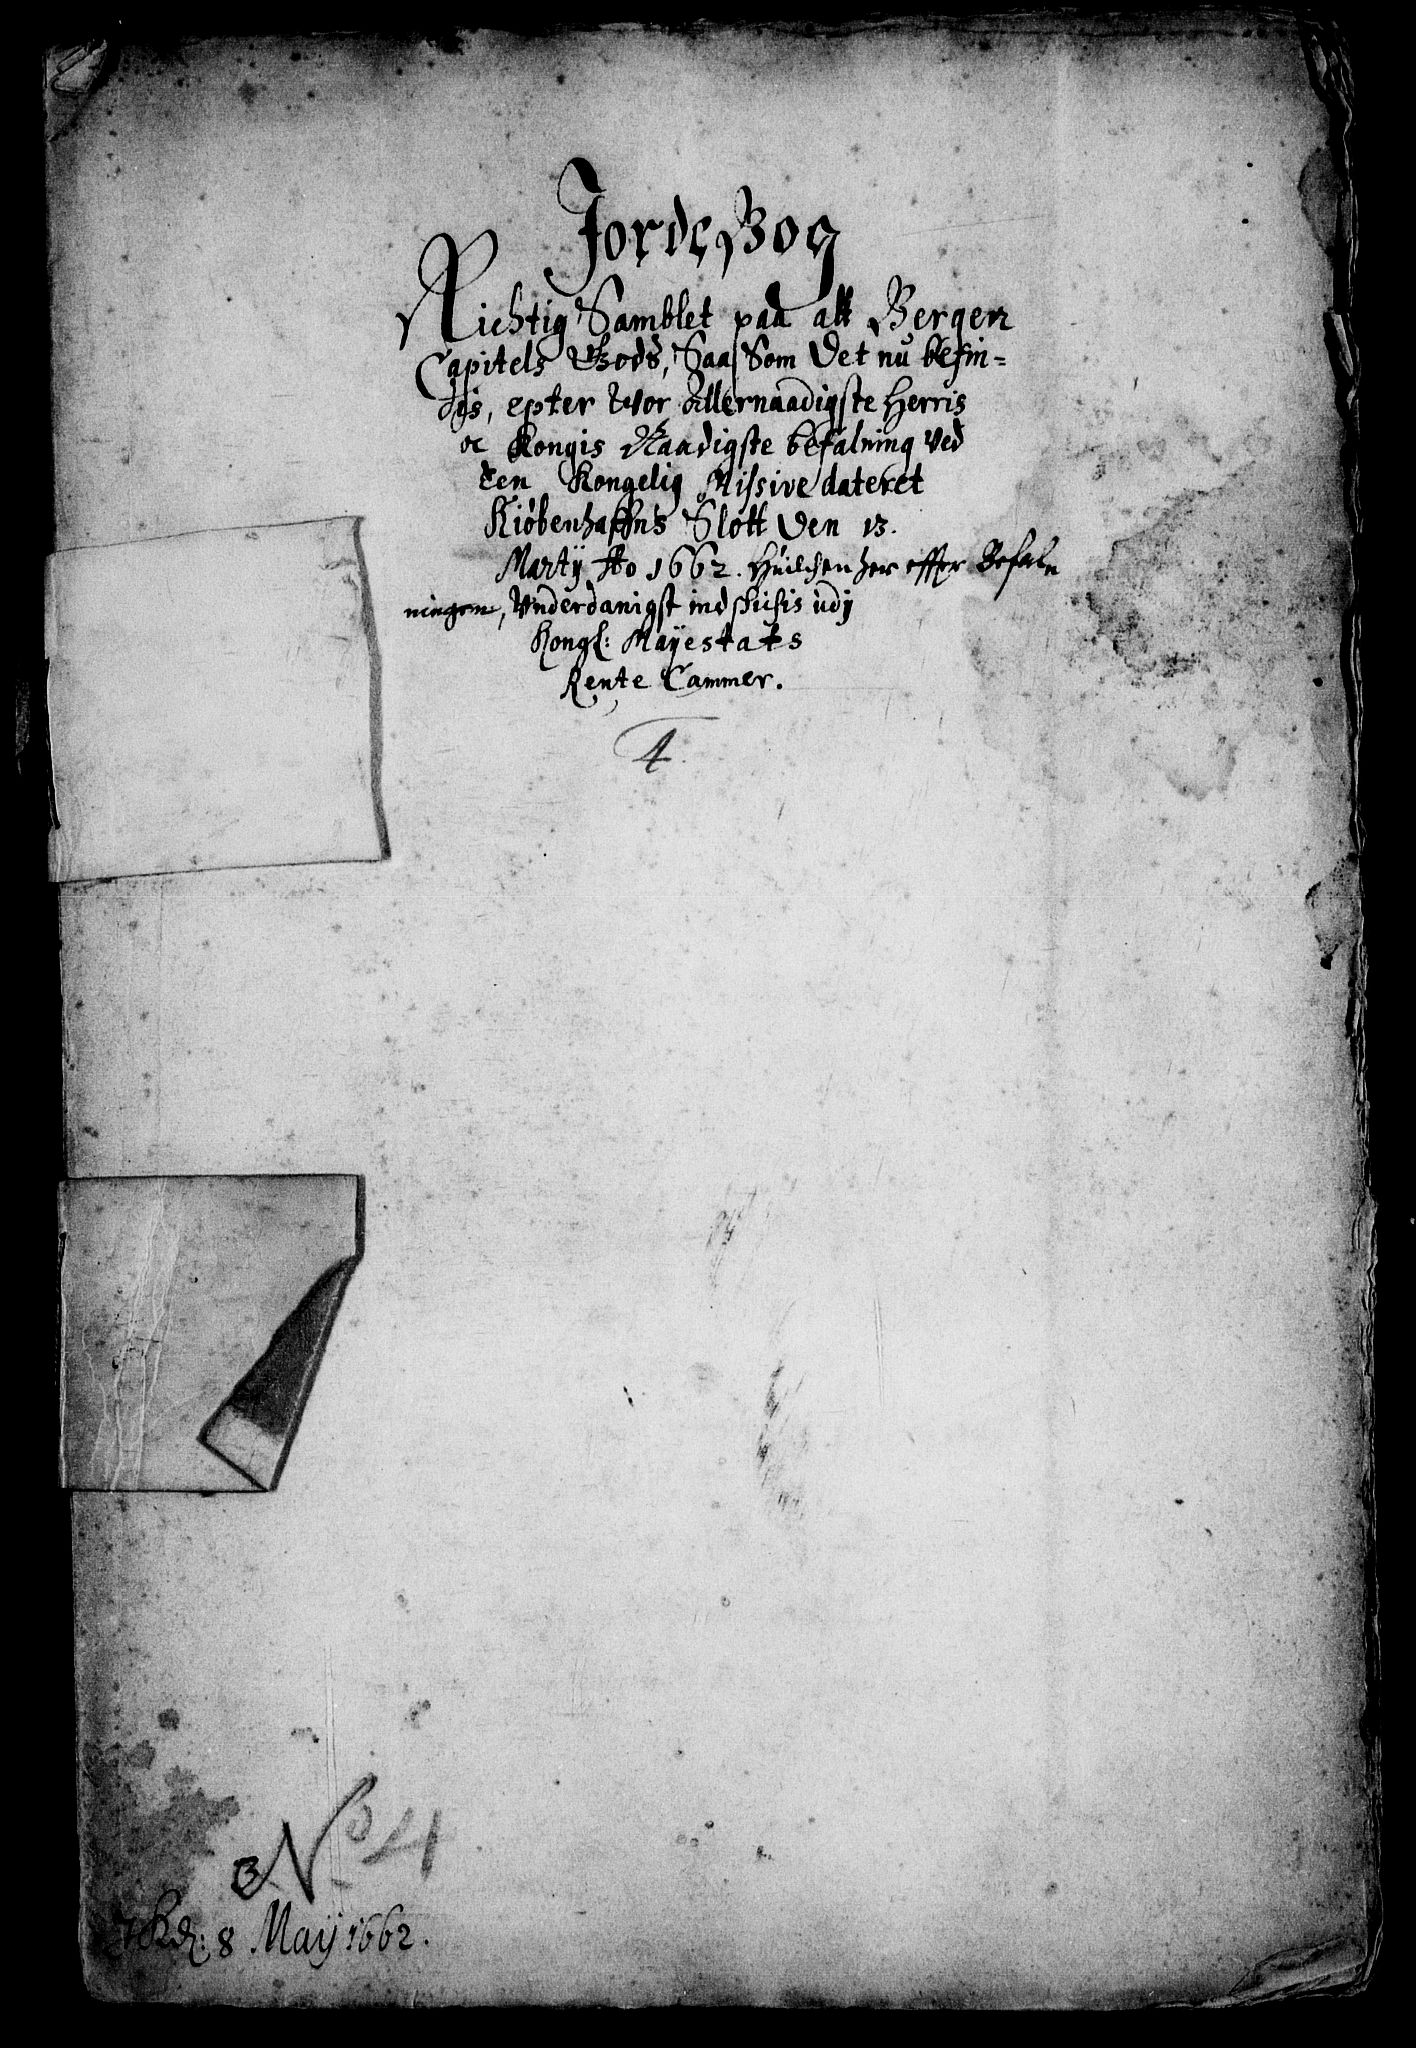 Jorde Bog
Richtig Samblet paa alt Bergen
Capitels Gods, Saa Som Det nu befin-
dis, epter Wor Allernaadigste Herris
oc Kongis Naadigste befalning Ved
Een Kongelig Missive dateret
Kiøbenhaffns Slott Den 13.
Martij Ao 1662. Huilchen her effter Befal
ningen, Vnderdanigst indschifis udj
Kongl: Mayestats
Rente Cammer.
4
No 4
8 Maij 1662.